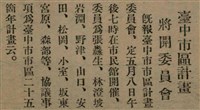 臺中市區計畫
將開委員會
既報臺中市區計畫
委員會。定五月八日午
後七時在市民館開催。
委員爲張生、林澄坡
岩淵、野津、山口、安
田、松岡、小室、坂東
宮原、森部等。協議事
項爲臺中市市區二十五
箇年計畫云。